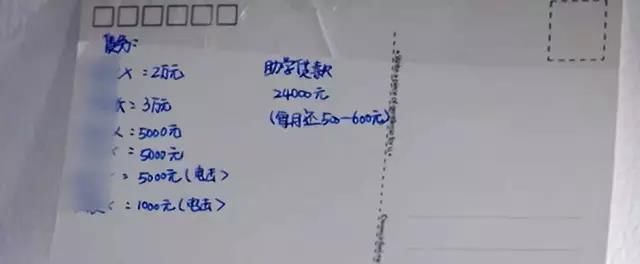 债务:
X: 2万元
: 3万元
: 5000元
: 5000元
: 5000元(电击)
: 1000元(电击)
助学贷款
24000元
(每月还500-600元)